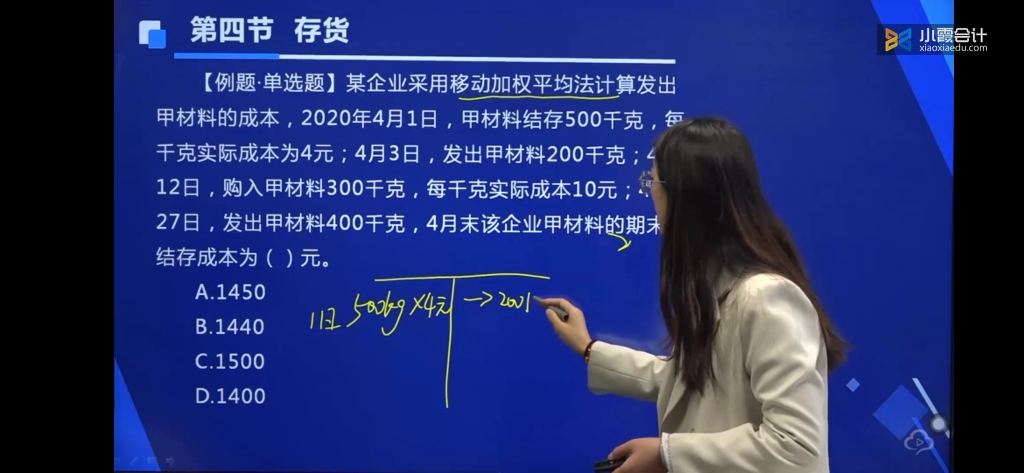 第四节 存货
小霞会计
xiaoxiaedu.com
【例题·单选题】某企业采用移动加权平均法计算发出
甲材料的成本，2020年4月1日，甲材料结存500千克，每
千克实际成本为4元；4月3日，发出甲材料200千克；4
12日，购入甲材料300千克，每千克实际成本10元；4
27日，发出甲材料400千克，4月末该企业甲材料的期末
结存成本为（ ）元。
A.1450
B.1440
C.1500
D.1400
500kg×4元 → 200